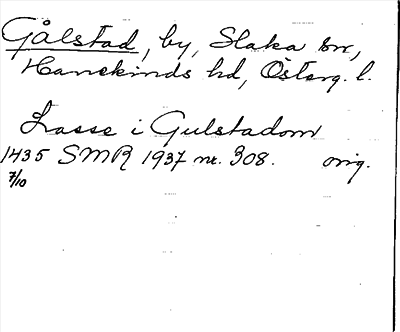 Gålstad, by, Slaka sn,
Hanekinds hd, Österg. l.
Lasse i Gulstadom
1435 SMR 1937 nr. 308. orig.
7/10